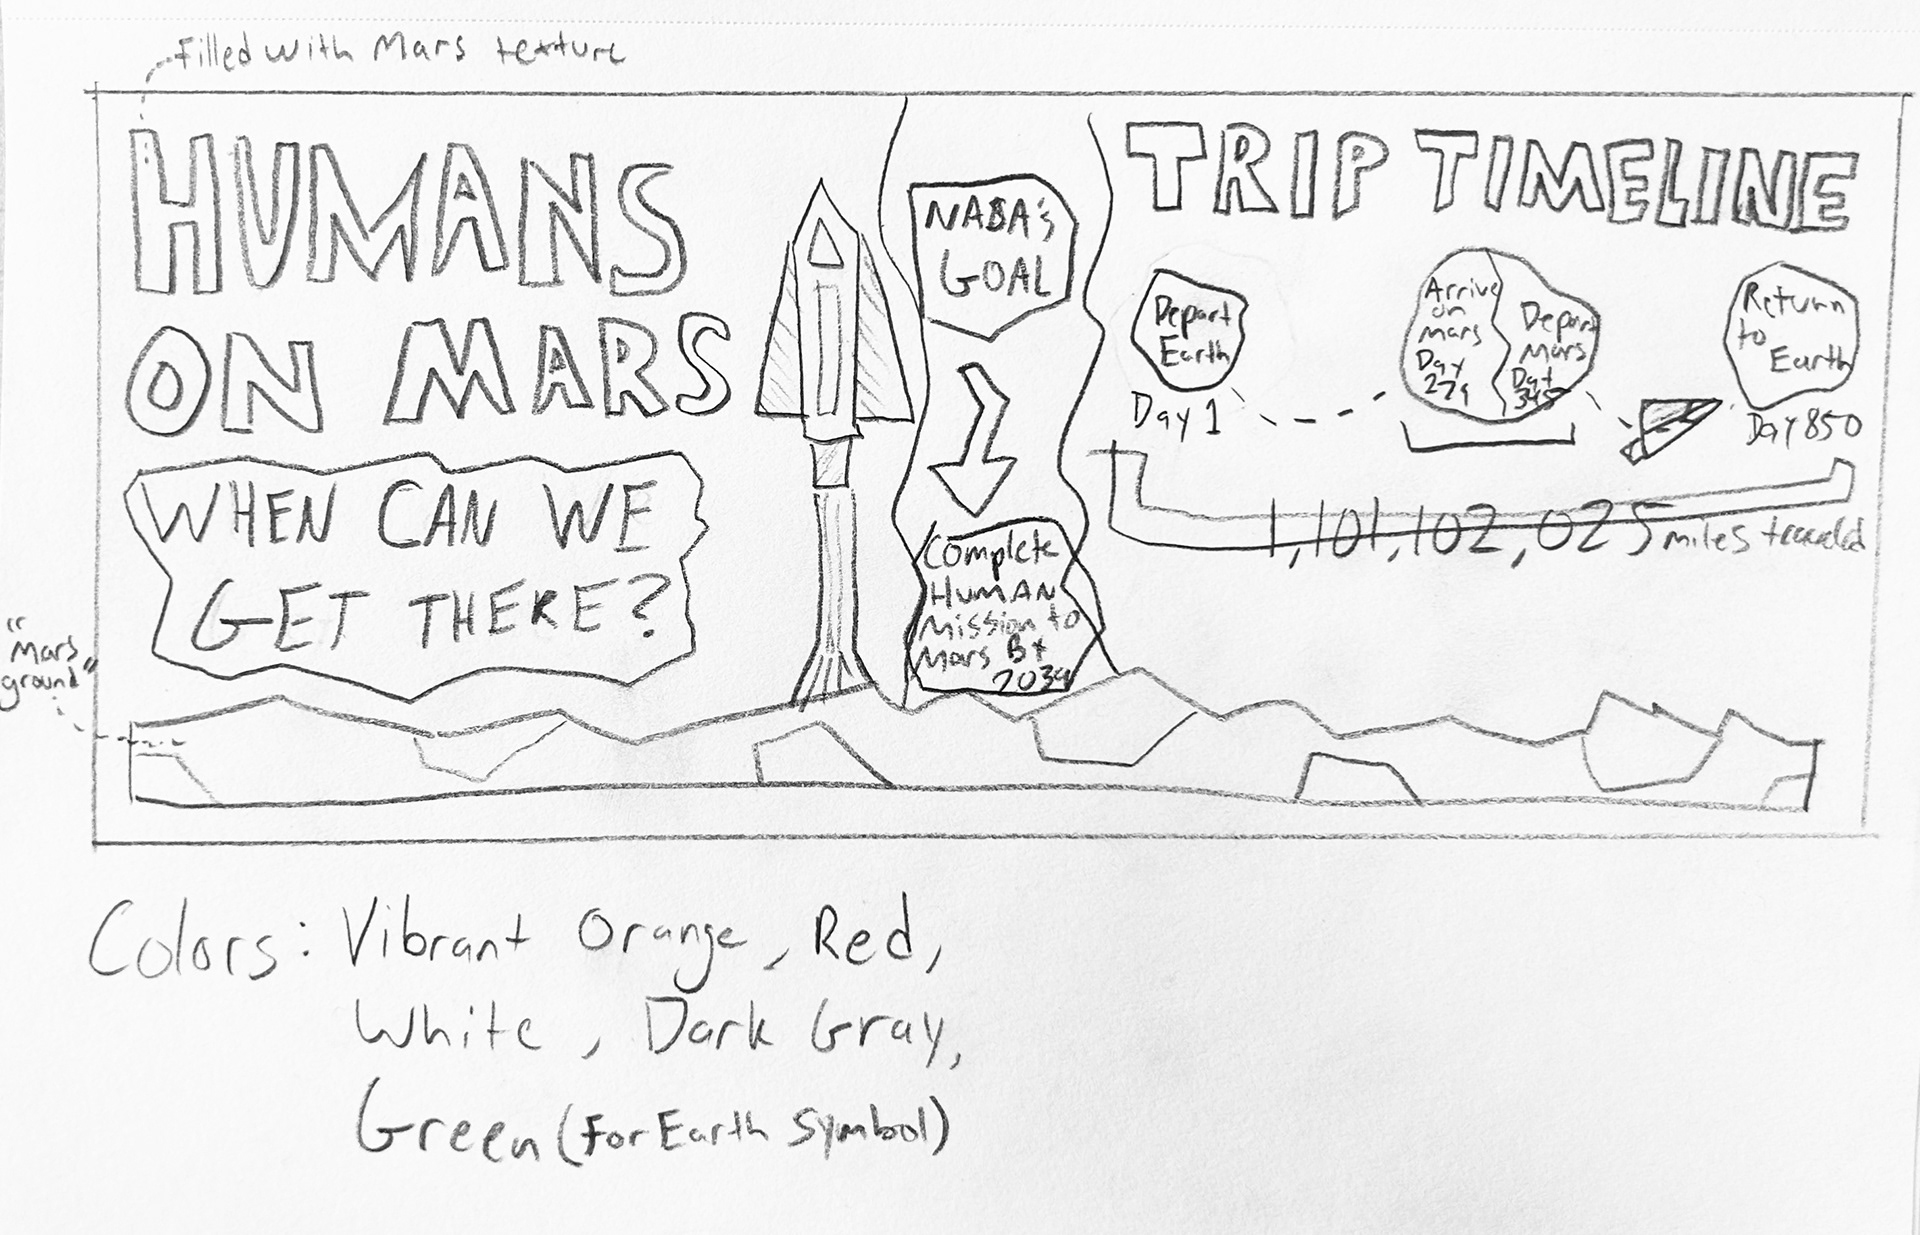 Filled with Mars texture
HUMANS
ON MARS
WHEN CAN WE
GET THERE?
"Mars
ground"
NABA's
GOAL
Complete
HUMAN
Mission to
Mars By
2039
TRIP TIMELINE
Depart
Earth
Day 1
Arrive
on
Mars
Day
279
Depart
Mars
Day
345
Return
to
Earth
Day 850
1,101,102,025 miles traveled
Colors: Vibrant Orange, Red,
White, Dark Gray,
Green (For Earth Symbol)